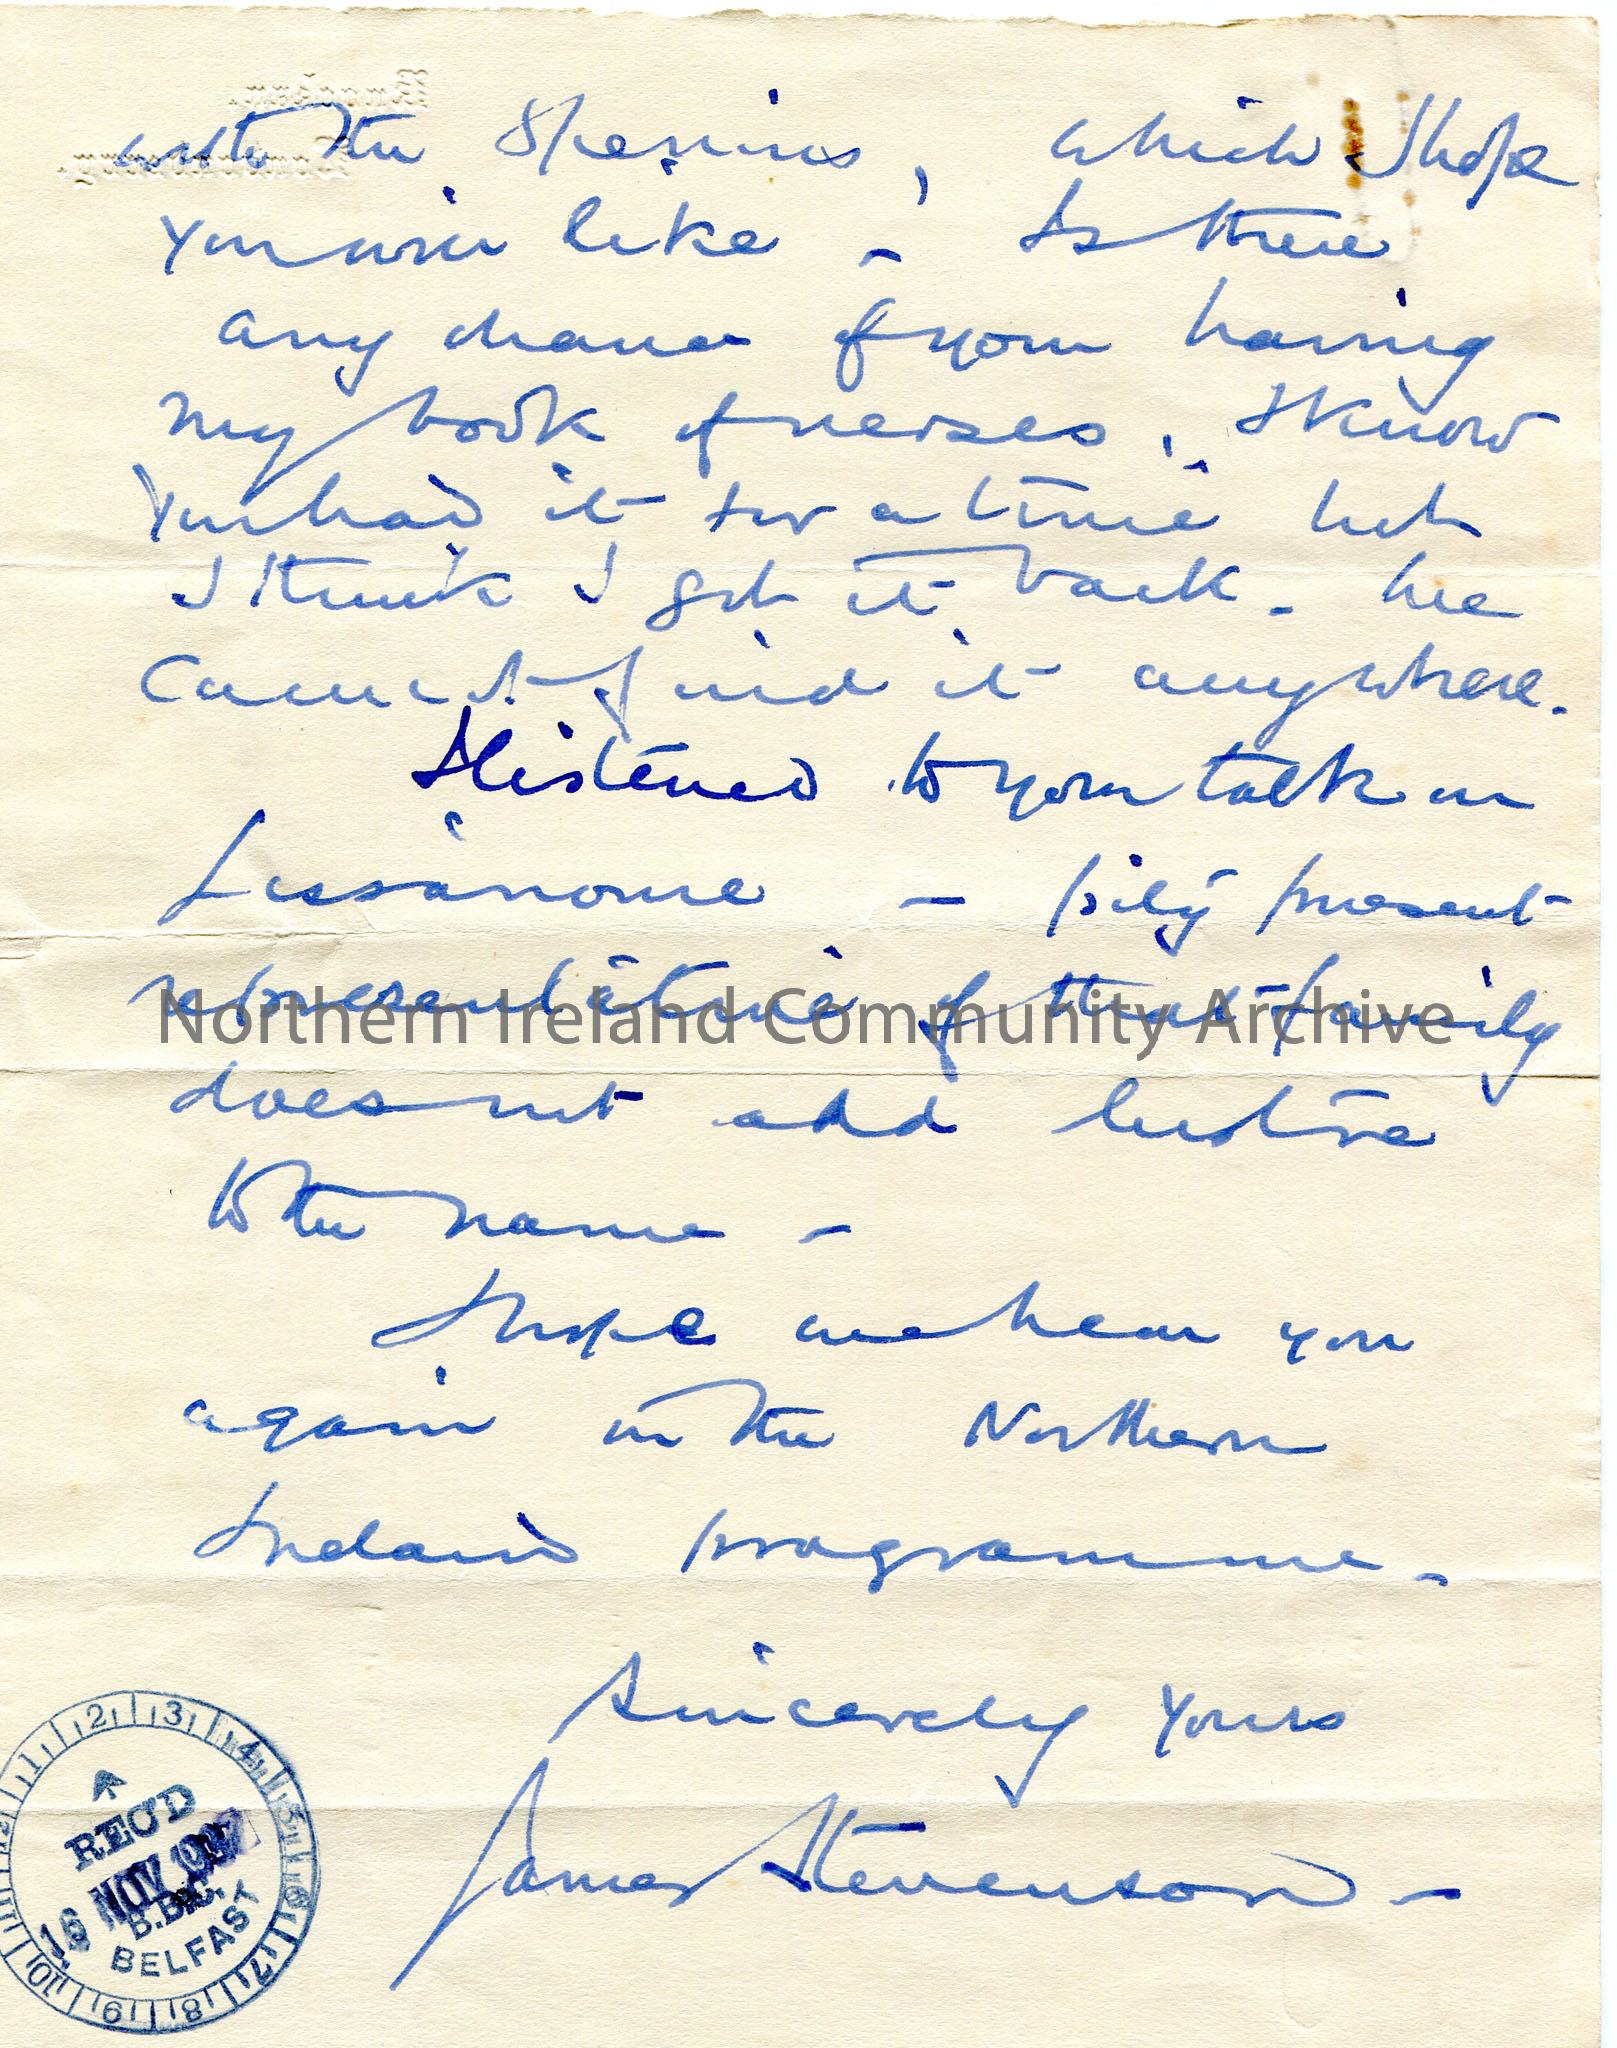 with the Sperrins, which I hope
you will like - Is there
any chance of your having
my book of verses. I know
you had it for a time but
I think I got it back. We
cannot find it anywhere.
I listened to your talk on
Lissanoure - pity present
representative of that family
Northern Ireland Community Archive
does not add lustre
to the name -
I hope we hear you
again in the Northern
Ireland programme -
Sincerely Yours
James Stevenson -
1 2 3 4 5 6 7 8 9 10 11
REC'D
16 NOV
B.B.C.
BELFAST